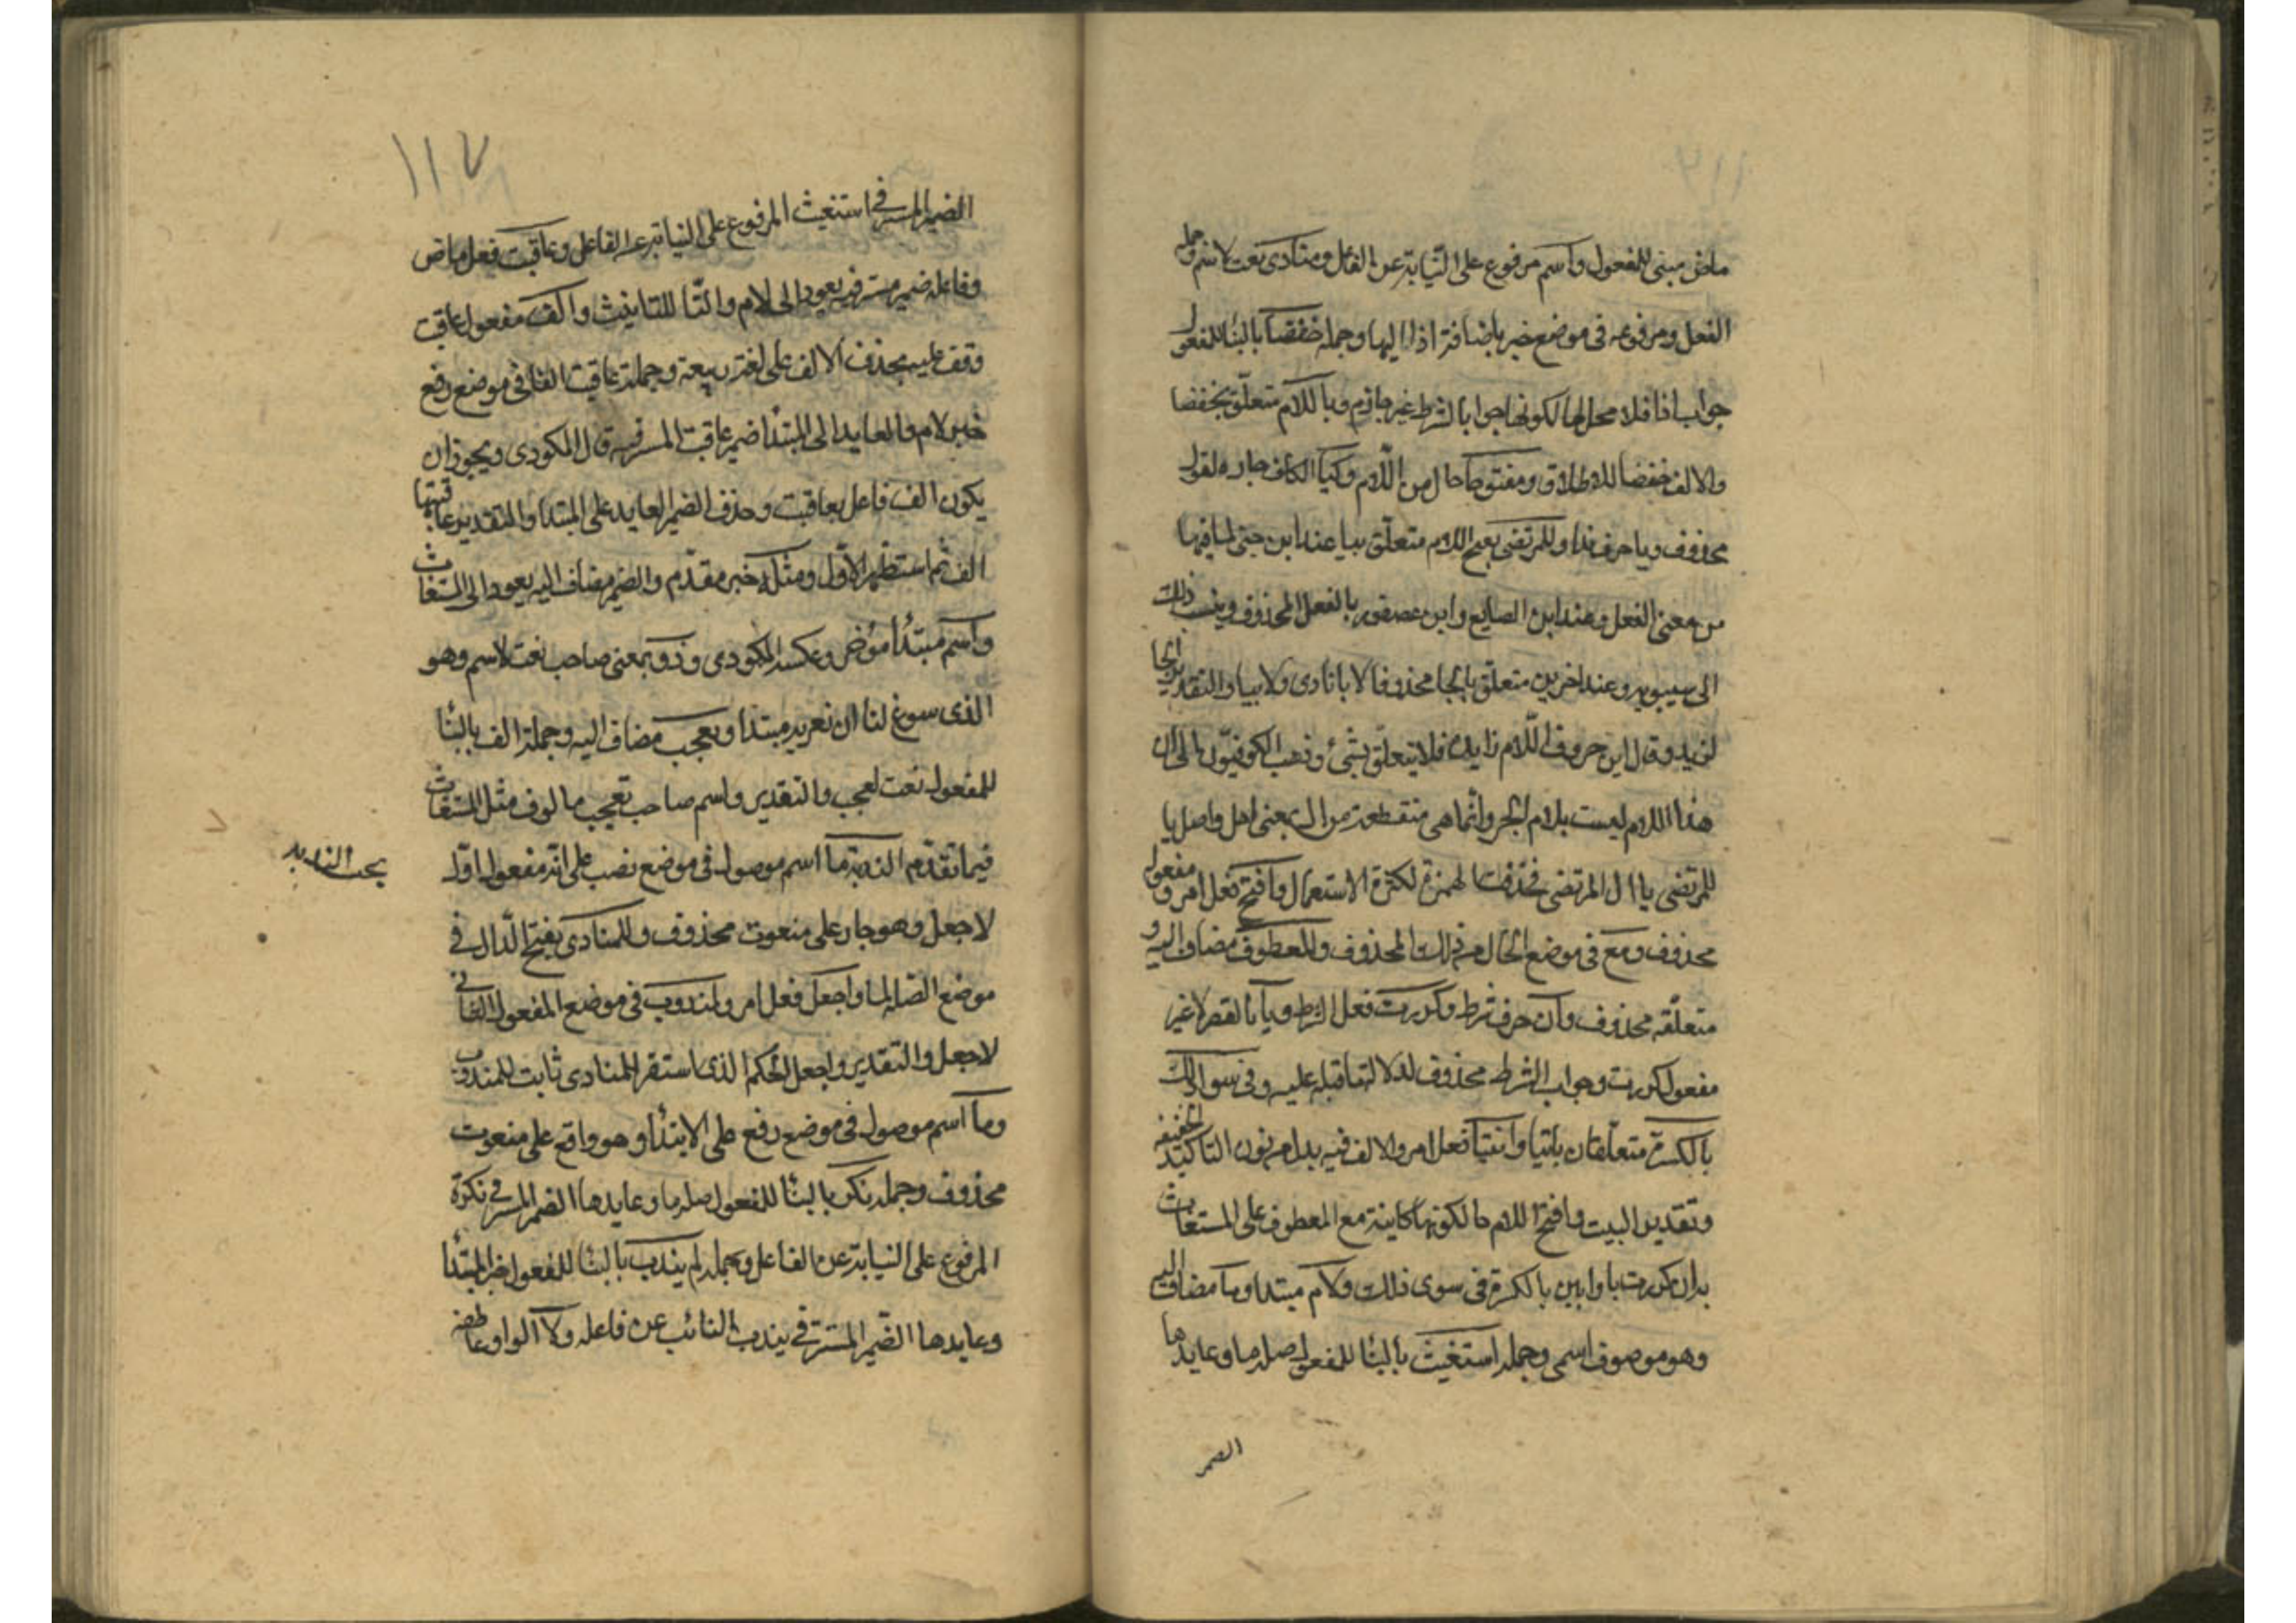 ماض مبنى للمفعول واسم مرفوع على النيابة عن الفاعل ومنادى نعت لاسم وجملة
الفعل ومرفوعه فى موضع خبر باضافة اذا اليها وجملة خفضا بالبنا للمفعول
جواب اذا فلا محل لها لكونها جوابا لشرط غير جازم وباللام متعلق بخفضا
والالف خفضا للاطلاق ومفتوحا حال من اللام وكيا الكاف جارة لقول
محذوف ويا حرف ندا وللمرتضى بفتح اللام متعلق بيا عند ابن جنى لما فيها
من معنى الفعل وعند ابن الصايع وابن عصفور بالفعل المحذوف وينسب ذلك
الى سيبويه وعند اخرين متعلق بالجا محذوفا لا بانادى ولا بيا والتقدير الجا
لزيد وقال ابن خروف اللام زايدة فلا يتعلق بشئ وذهب الكوفيون الى ان
هذا اللام ليست بلام الجر وانما هى منقطعة من ال بمعنى اهل واصل يا
للمرتضى يا ال المرتضى فحذفت الهمزة لكثرة الاستعمال وافتح فعل امر ومفعوله
محذوف ومع فى موضع الحال من ذلك المحذوف والمعطوف مضاف اليه و
متعلقه محذوف وان حرف شرط وكررت فعل الشرط ويا بالقصر لا غير
مفعول كررت وجواب الشرط محذوف لدلالة ما قبله عليه وفى سوا ذلك
بالكسر متعلقان بائتيا وائتيا فعل امر والالف فيه بدل من نون التاكيد الخفيفة
وتقدير البيت وافتح اللام حالكونها كاينة مع المعطوف على المستغاث
به ان كررت يا وايين بالكسرة فى سوى ذلك ولام مبتدا وما مضاف اليه
وهو موصوف اسمى وجملة استغيث بالبنا للمفعول صلة ما وعايدها
الضمير
١١٧
الضمير المستتر فى استغيث المرفوع على النيابة عن الفاعل وعاقبت فعل ماض
وفاعله ضمير مستتر فيه يعود الى لام والتا للتانيث والف مفعول عاقبت
وقف عليه بحذف الالف على لغة ربيعة وجملة عاقبت الفا فى موضع رفع
خبر لام والعايد الى المبتدا ضمير عاقبت المستتر فيه قال المكودى ويجوز ان
يكون الف فاعل بعاقبت وحذف الضمير العايد على المبتدا والتقدير عاقبتها
الف ثم استظهر الاول ومثله خبر مقدم والضمير مضاف اليه يعود الى المستغاث
واسم مبتدا مؤخر وعكسه المكودى وذو بمعنى صاحب نعت لاسم وهو
الذى سوغ لنا ان نعربه مبتدا وتعجب مضاف اليه وجملة الف بالبنا
للمفعول نعت لعجب والتقدير واسم صاحب تعجب مالوف مثل المستغاث
فيما تقدم الندبة ما اسم موصول فى موضع نصب على انه مفعول اول
بحث الندبه
لاجعل وهو جار على منعوت محذوف وللمنادى بفتح الدال فى
موضع الصلة لما واجعل فعل امر ولمندوب فى موضع المفعول الثانى
لاجعل والتقدير واجعل الحكم الذى استقر للمنادى ثابت للمندوب
وما اسم موصول فى موضع رفع على الابتدا وهو واقع على منعوت
محذوف وجملة نكر بالبنا للمفعول صلة ما وعايدها الضمير المستتر فى نكرة
المرفوع على النيابة عن الفاعل وجملة لم يندب بالبنا للمفعول خبر المبتدا
وعايدها الضمير المستتر فى يندب النائب عن فاعله ولا الواو عاطفة